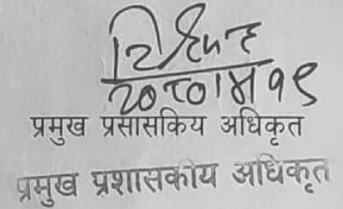 २०८०।५।१९
प्रमुख प्रसासकिय अधिकृत
प्रमुख प्रशासकीय अधिकृत